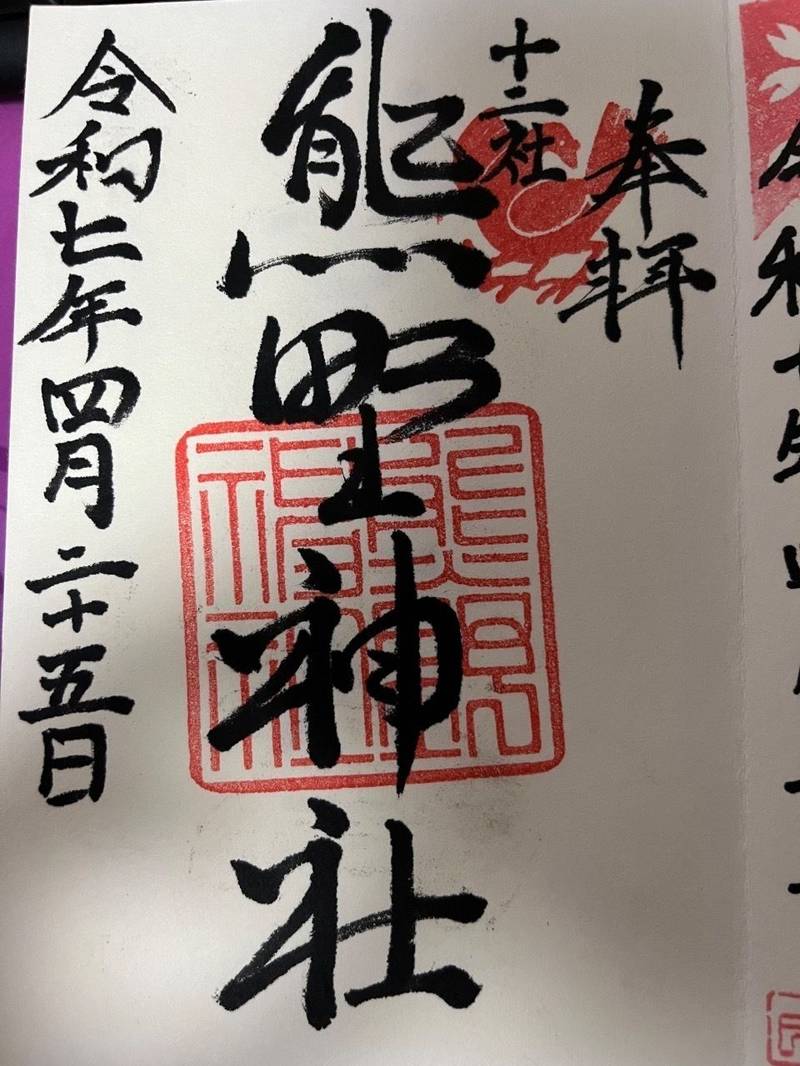 奉拝
十二社
熊野神社
令和七年四月二十五日